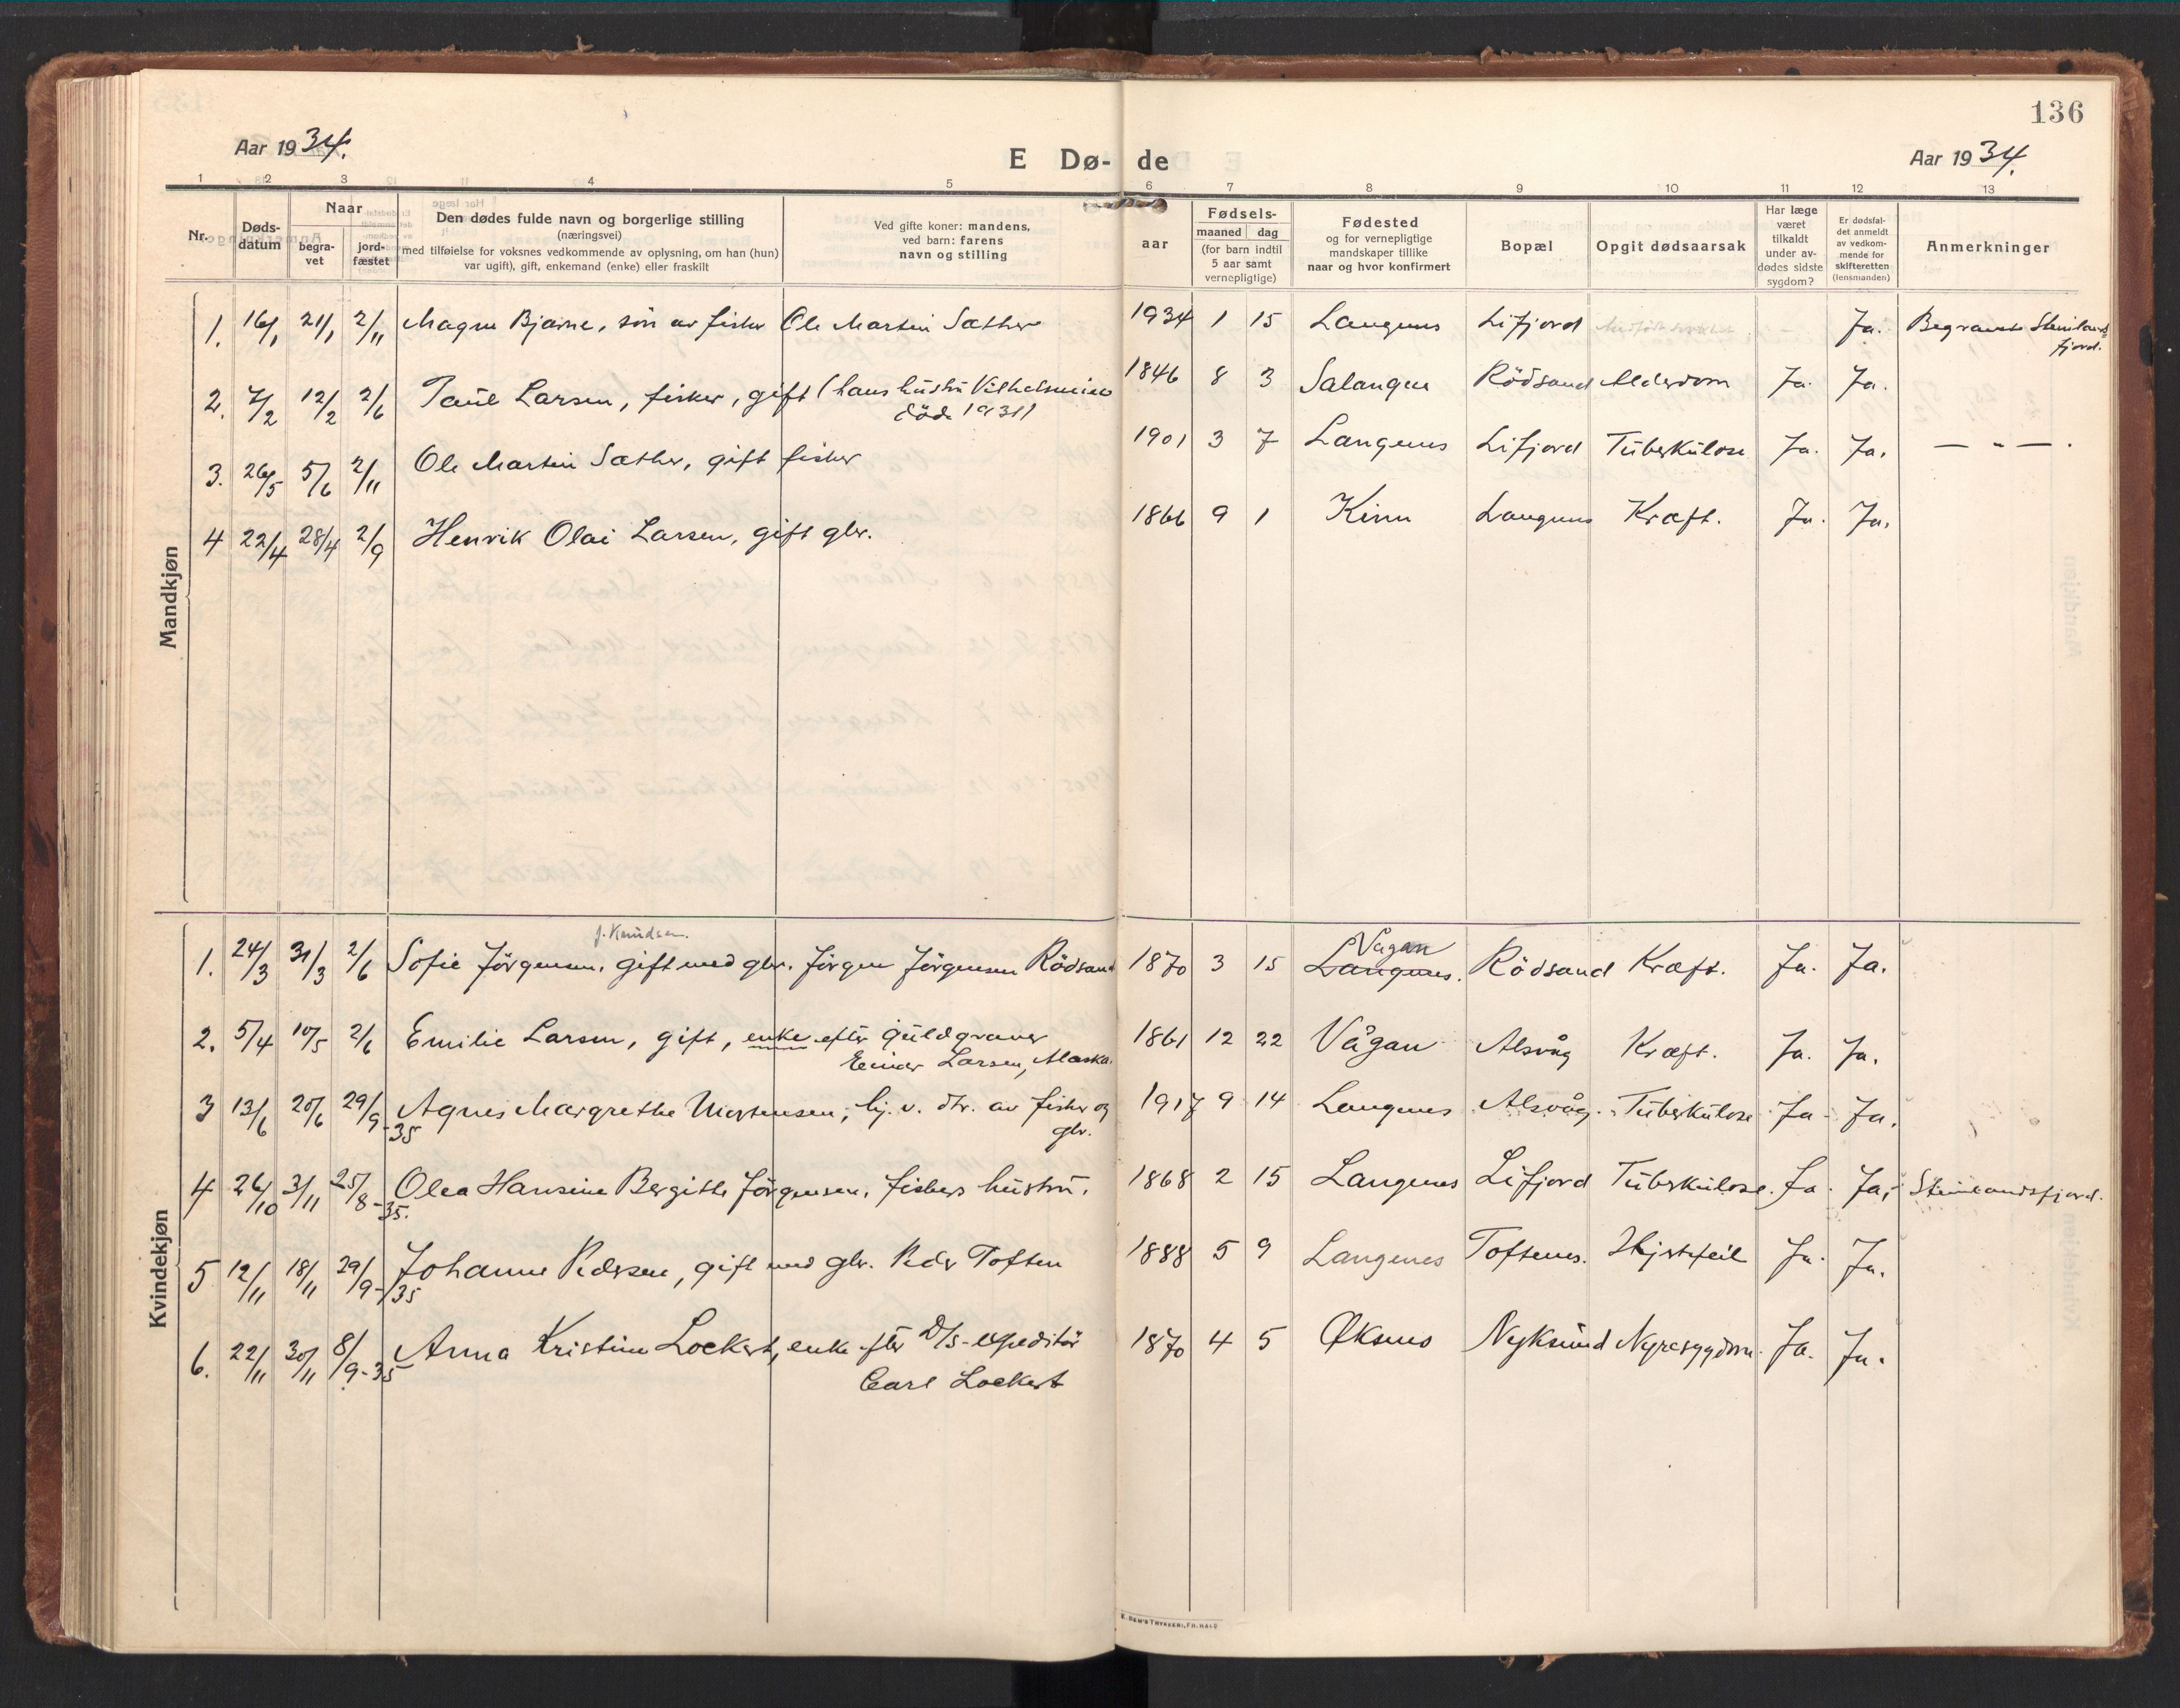 136
Aar 1934.
E Dø- de
Aar 1934.
1 2 3 4 5 6 7 8 9 10 11 12 13
Nr.
Døds-
datum
Naar
begra-
vet
jord-
fæstet
Den dødes fulde navn og borgerlige stilling
(næringsvei)
med tilføielse for voksnes vedkommende av oplysning, om han (hun)
var ugift), gift, enkemand (enke) eller fraskilt
Ved gifte koner: mandens,
ved barn: farens
navn og stilling
Fødsels-
aar
maaned dag
(for barn indtil
5 aar samt
vernepligtige)
Fødested
og for vernepligtige
mandskaper tillike
naar og hvor konfirmert
Bopæl
Opgit dødsaarsak
Har læge
været
tilkaldt
under av-
dødes sidste
sygdom?
Er dødsfal-
det anmeldt
av vedkom-
mende for
skifteretten
(lensmanden)
Anmerkninger
Mandkjøn
1. 16/1 21/1 2/11 Magne Bjarne, sön av fisker Ole Martin Sæther 1934 1 15 Langenes Lifjord – Ja. Begravet Steinlands
fjord.
2. 7/2 12/2 2/6 Paul Larsen, fisker, gift (hans hustru Vilhelmine 1846 8 3 Salangen Rödsand Alderdom Ja. Ja.
döde 1931)
3. 26/5 5/6 2/11 Ole Martin Sæther, gift fisker 1901 3 7 Langenes Lifjord Tüberkülose Ja. Ja. — " — .
4 22/4 28/4 2/9 Henrik Olai Larsen, gift gbr. 1866 9 1 Kinn Langenes Kræft. Ja. Ja.
Kvindekjøn
f. Knudsen.
Vågan
1. 24/3 31/3 2/6 Sofie Jörgensen, gift med gbr. Jörgen Jörgensen Rödsand 1870 3 15 Langenes. Rödsand Kræft. Ja. Ja.
2. 5/4 10/5 2/6 Emilie Larsen, gift, enke efter guldgraver 1861 12 22 Vågan Alsvåg Kræft. Ja. Ja.
Einar Larsen, Alaska.
3 13/6 20/6 29/9-35 Agnes Margrethe Mortensen, hj. v. dtr. av fisker og 1917 9 14 Langenes Alsvåg. Tüberkülose Ja - Ja.
gbr.
4 26/10 3/11 25/8-35. Olea Hansine Bergithe Jörgensen, fiskers hustru. 1868 2 15 Langenes Lifjord Tüberkülose. Ja. Ja, Steinlandsfjord.
5 12/11 18/11 29/9-35 Johanne Pedersen, gift med gbr. Peder Toften 1888 5 9 Langenes Toftenes. Hjertefeil Ja. Ja.
6. 22/11 30/11 8/9-35 Anna Kristine Lockert, enke efter D/S-expeditör 1870 4 5 Øksnes Nyksund Nyresygdom. Ja. Ja.
Carl Lockert